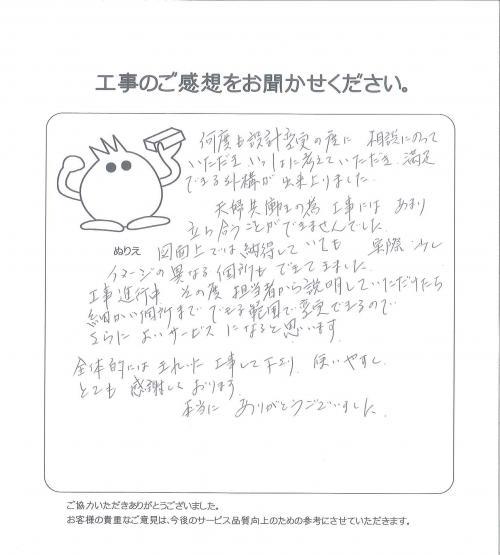 工事のご感想をお聞かせください。
何度も設計変更の度に 相談にのって
いただき いっしょに考えていただき 満足
できる外構が出来上りました。
夫婦共働きの為 工事には あまり
立ち合うことができませんでした。
ぬりえ
図面上では納得していても 実際 少し
イメージの異なる個所も でてきました。
工事進行中 その度 担当者から説明していただけたら
細かい個所まで できる範囲で変更できるので
さらに よいサービス になると思います。
全体的には きれいに工事して下さり 使いやすく
とても 感謝して おります。
本当に ありがとうございました。
ご協力いただきありがとうございました。
お客様の貴重なご意見は、今後のサービス品質向上のための参考にさせていただきます。